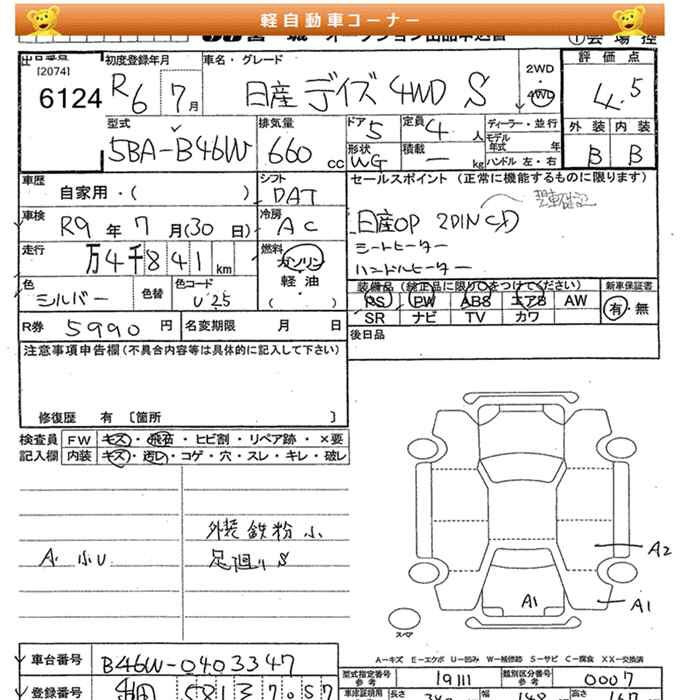 軽自動車コーナー
出品番号
[2074]
6124
初度登録年月
R6 7月
車名・グレード
日産 デイズ 4WD S
2WD
・
4WD
評価点
4.5
外装 内装
B B
型式
5BA-B46W
排気量
660 cc
ドア
5
定員
4人
ディーラー・並行
モデル年式 年
形状
WG
積載
― kg
ハンドル 左・右
車歴
自家用・( )
シフト
DAT
セールスポイント (正常に機能するものに限ります)
日産OP 2DIN CD
シートヒーター
ハンドルヒーター
車検
R9年 7月(30日)
冷房
AC
走行
万4千841 km
燃料
ガソリン
軽油
( )
色
シルバー
色替
色コード
U25
装備品 (純正品に限り○をつけてください)
PS PW ABS エアB AW
SR ナビ TV カワ
新車保証書
有・無
R券 5990円
名変期限 月 日
後日品
注意事項申告欄 (不具合内容等は具体的に記入して下さい)
修復歴 有 〔箇所 〕
検査員
記入欄
FW キズ・飛石・ヒビ割・リペア跡・×要
内装 キズ・汚レ・コゲ・穴・スレ・キレ・破レ
外装 鉄粉 小
A 小U
足廻り S
A2
A1
A1
スペア
A―キズ E―エクボ U―凹み W―補修跡 S―サビ C―腐食 XX―交換済
車台番号
B46W-0403347
型式指定番号
参考
19111
類別区分番号
参考
0007
登録番号
長さ
幅
高さ